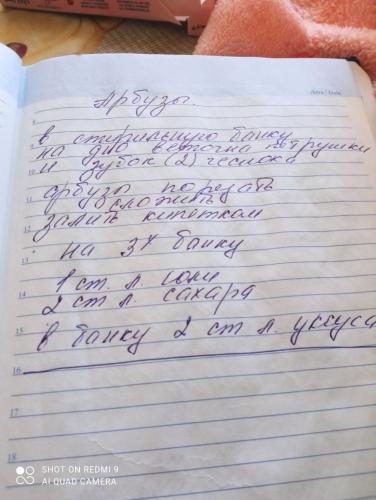 Арбузы
в стирильную банку
на дно веточка петрушки
и зубок (2) чеснока
арбузы порезать
сложить
залить кипетком
на 3х банку
1 ст. л. соли
2 ст л. сахара
в банку 2 ст л. уксуса
9
10
11
12
13
14
15
16
17
18
SHOT ON REDMI 9
AI QUAD CAMERA